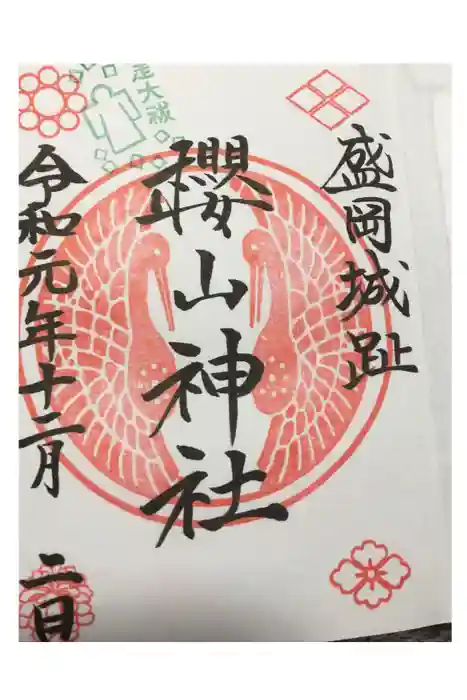 盛岡城趾
櫻山神社
令和元年十二月 二日
走大祓